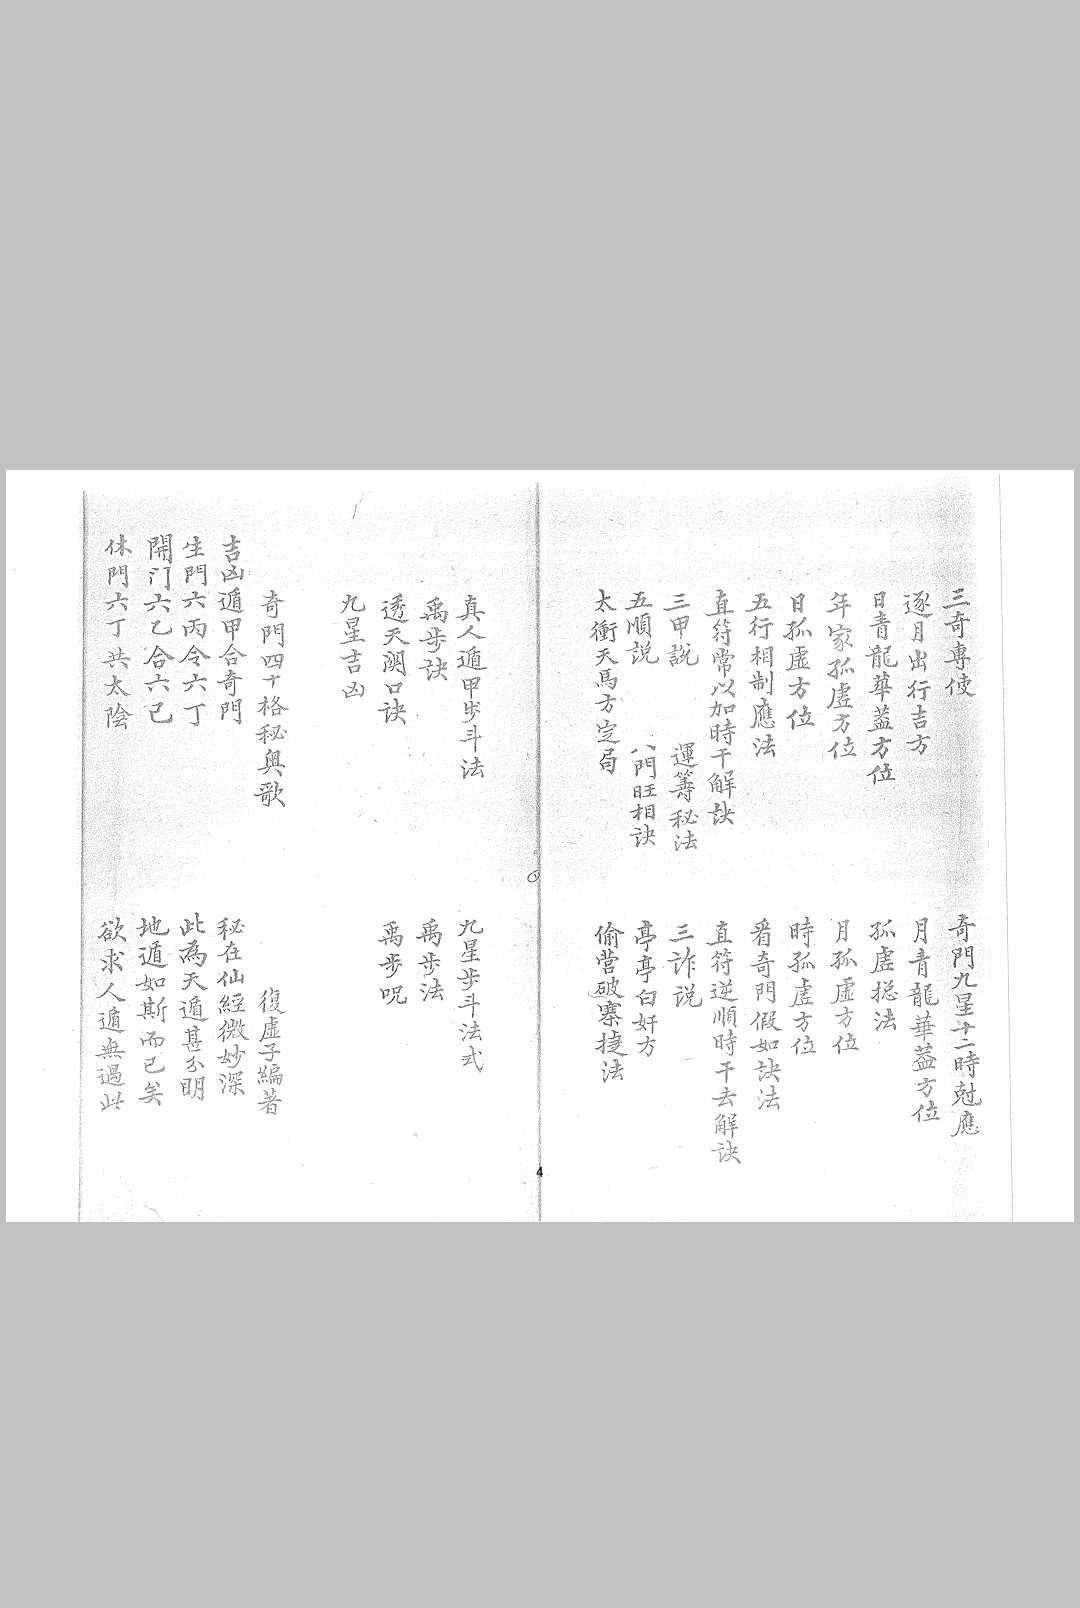 三奇專使　奇門九星十二時尅應
逐月出行吉方　月青龍華蓋方位
日青龍華蓋方位　孤虛捴法
年家孤虛方位　月孤虛方位
日孤虛方位　時孤虛方位
五行相制應法　看奇門假如訣法
直符常以加時干解訣　直符逆順時干去解訣
三甲說　運籌秘法　三詐说
五順説　八門旺相訣　亭亭白奸方
太衝天馬方定局　偷营破寨捷法
真人遁甲步斗法　九星步斗法式
禹步訣　禹步法
透天関口訣　禹步呪
九星吉凶
奇門四十格秘奥歌　復虛子編著
吉凶遁甲合奇門　秘在仙經微妙深
生門六丙令六丁　此為天遁甚分明
開门六乙合六己　地遁如斯而已矣
休門六丁共太陰　欲求人遁無過此
4